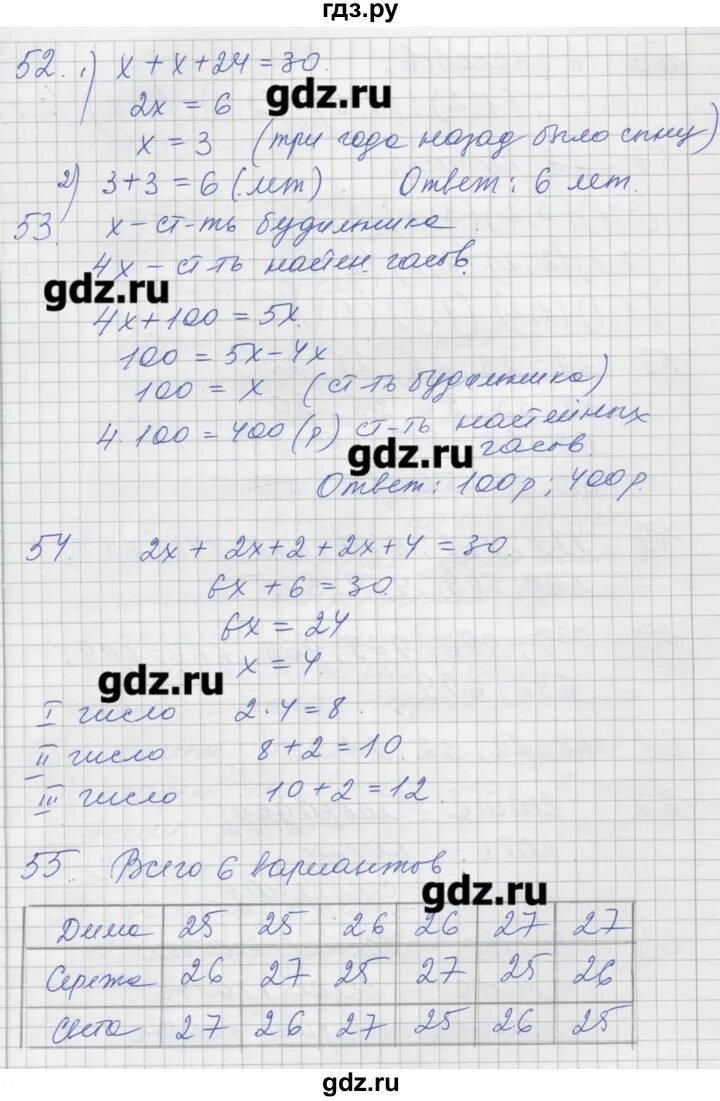 гдз.ру
52. 1) x + x + 24 = 30.
2x = 6
gdz.ru
x = 3 (три года назад было сыну)
2) 3 + 3 = 6 (лет) Ответ: 6 лет.
53. x – ст-ть будильника
4x – ст-ть настен. часов.
gdz.ru
4x + 100 = 5x.
100 = 5x – 4x
100 = x (ст-ть будильника)
4 · 100 = 400 (р) ст-ть настенных
часов.
gdz.ru
Ответ: 100 р; 400 р.
54. 2x + 2x + 2 + 2x + 4 = 30.
6x + 6 = 30.
6x = 24
x = 4.
gdz.ru
I число 2 · 4 = 8.
II число 8 + 2 = 10.
III число 10 + 2 = 12.
55. Всего 6 вариантов.
gdz.ru
Дима 25 25 26 26 27 27
Сережа 26 27 25 27 25 26
Света 27 26 27 25 26 25
gdz.ru